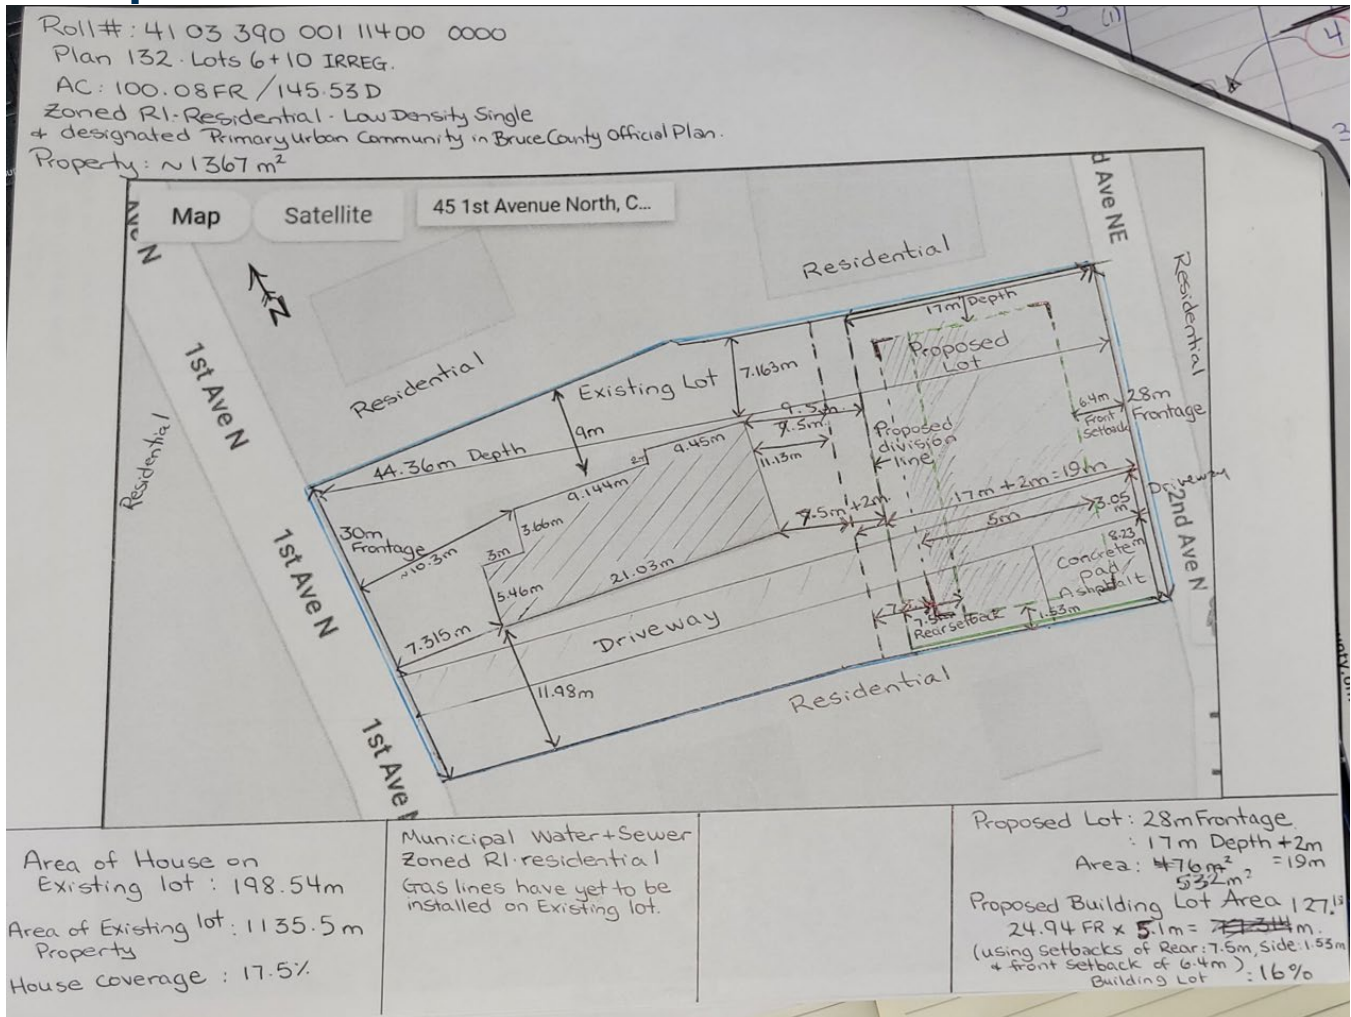 Roll#: 41 03 390 001 11400 0000
Plan 132. Lots 6+10 IRREG.
AC: 100.08FR/145.53D
Zoned R1-Residential-Low Density Single
+ designated Primary Urban Community in Bruce County Official Plan.
Property: ~1367 m²
(1)
4
Map
Satellite
45 1st Avenue North, C...
Ave N
d Ave NE
1st Ave N
1st Ave N
1st Ave N
2nd Ave N
N
Residential
Residential
Residential
Residential
Residential
17m Depth
Proposed
Lot
Existing Lot
7.163m
9m
44.36m Depth
9.5m
9.5m
11.13m
9.45m
2m
9.144m
3.66m
3m
5.46m
21.03m
30m
Frontage
~10.3m
7.315m
11.98m
Driveway
Proposed
division
line
6.4m
Front
setback
28m
Frontage
17m+2m=19m
Driveway
3.05
m
5m
.5m+2m
8.23
m
Concrete
pad/
Ashpbalt
7.5m
Rear setback
1.53m
Area of House on
Existing lot: 198.54m
Area of Existing lot: 1135.5m
Property
House coverage: 17.5%
Municipal Water+Sewer
Zoned R1-residential
Gas lines have yet to be
installed on Existing lot.
Proposed Lot: 28m Frontage
: 17m Depth +2m
=19m
Area: 476m²
532m²
Proposed Building Lot Area 127.
24.94 FR x 5.1m = m.
(using setbacks of Rear: 7.5m, Side: 1.53m
+ front setback of 6.4m)
Building Lot : 16%